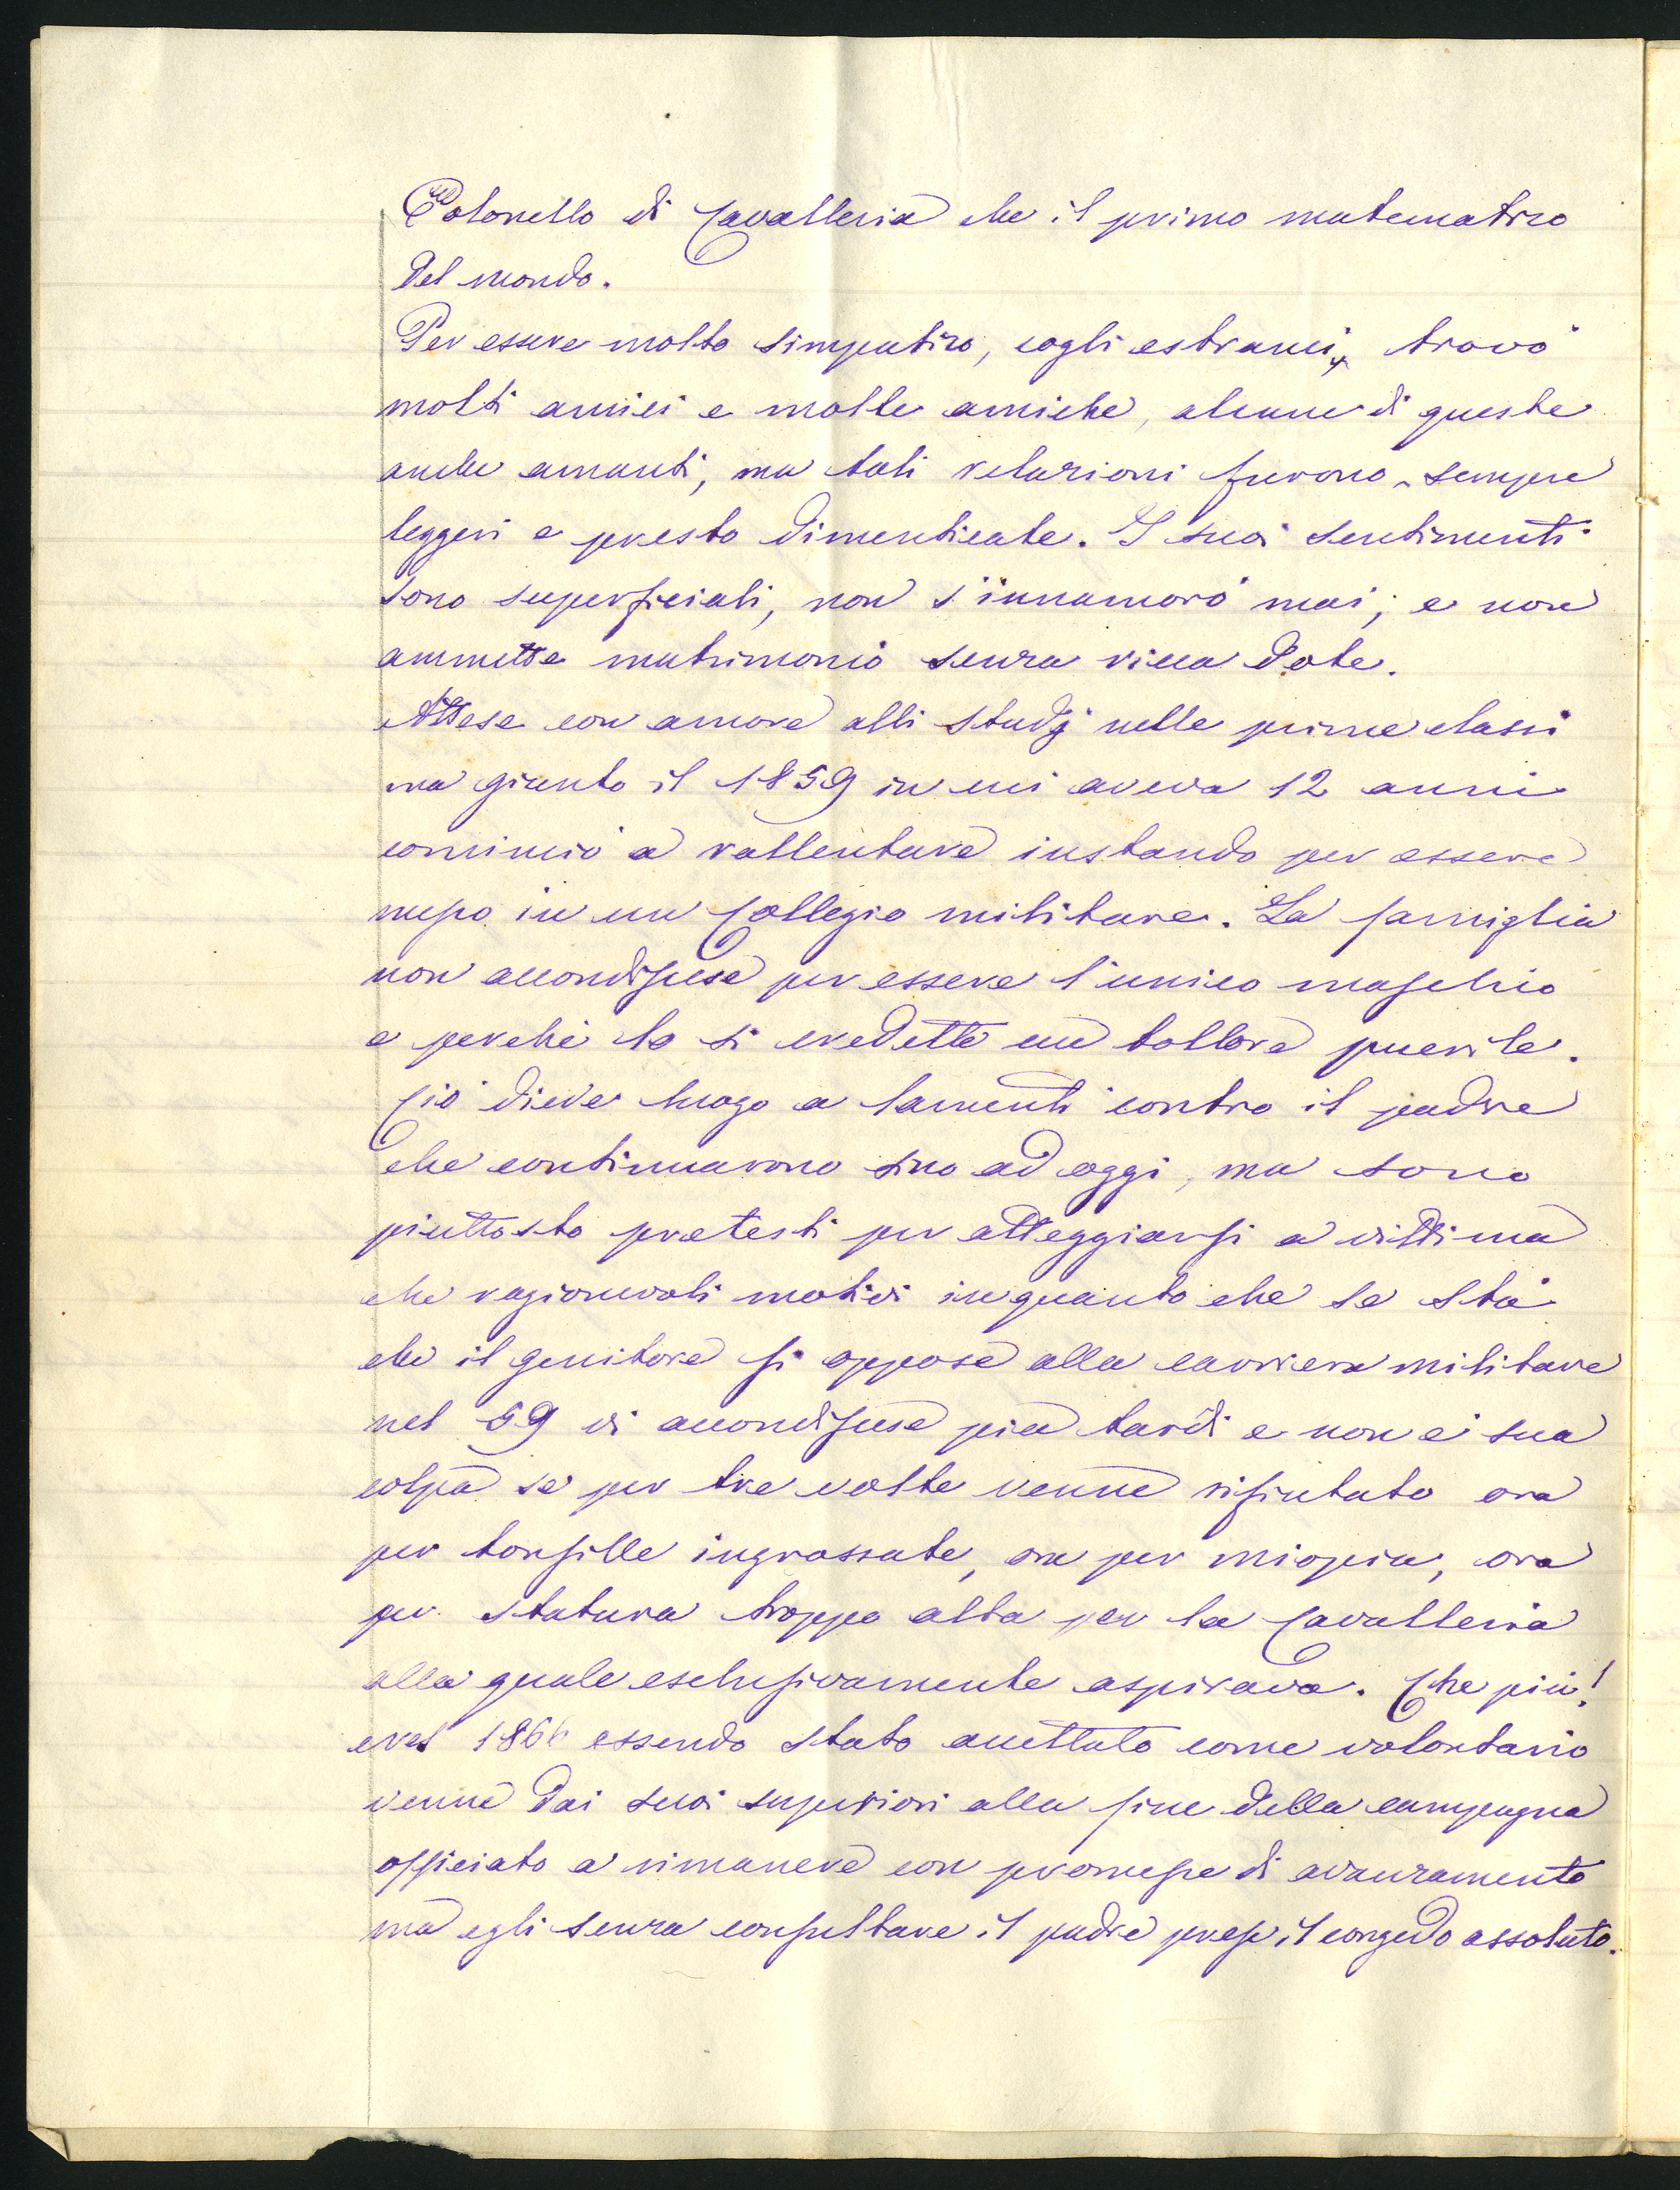 Colonello di Cavalleria che il primo matematico
del mondo.
Per essere molto simpatico, cogli estranei, trovò
molti amici e molte amiche, alcune di queste
anche amanti, ma tali relazioni furono sempre
leggeri e presto dimenticate. I suoi sentimenti
sono superficiali, non s'innamorò mai, e non
ammette matrimonio senza ricca dote.
Attese con amore alli studj nelle prime classi
ma giunto il 1859 in cui aveva 12 anni
cominciò a rallentare instando per essere
messo in un Collegio militare. La famiglia
non accondiscese per essere l'unico maschio
e perchè lo si credette un bollore puerile.
Ciò diede luogo a lamenti contro il padre
che continuarono sino ad oggi, ma sono
piuttosto pretesti per atteggiarsi a vittima
che ragionevoli motivi inquanto che se sta
che il genitore si oppose alla carriera militare
nel 59 vi accondiscese più tardi e non è sua
colpa se per tre volte venne rifiutato ora
per tonsille ingrossate, ora per miopia, ora
per statura troppo alta per la Cavalleria
alla quale esclusivamente aspirava. Che più!
nel 1866 essendo stato accettato come volontario
venne dai suoi superiori alla fine della campagna
officiato a rimanere con promesse di avanzamento
ma egli senza consultare il padre prese il congedo assoluto.